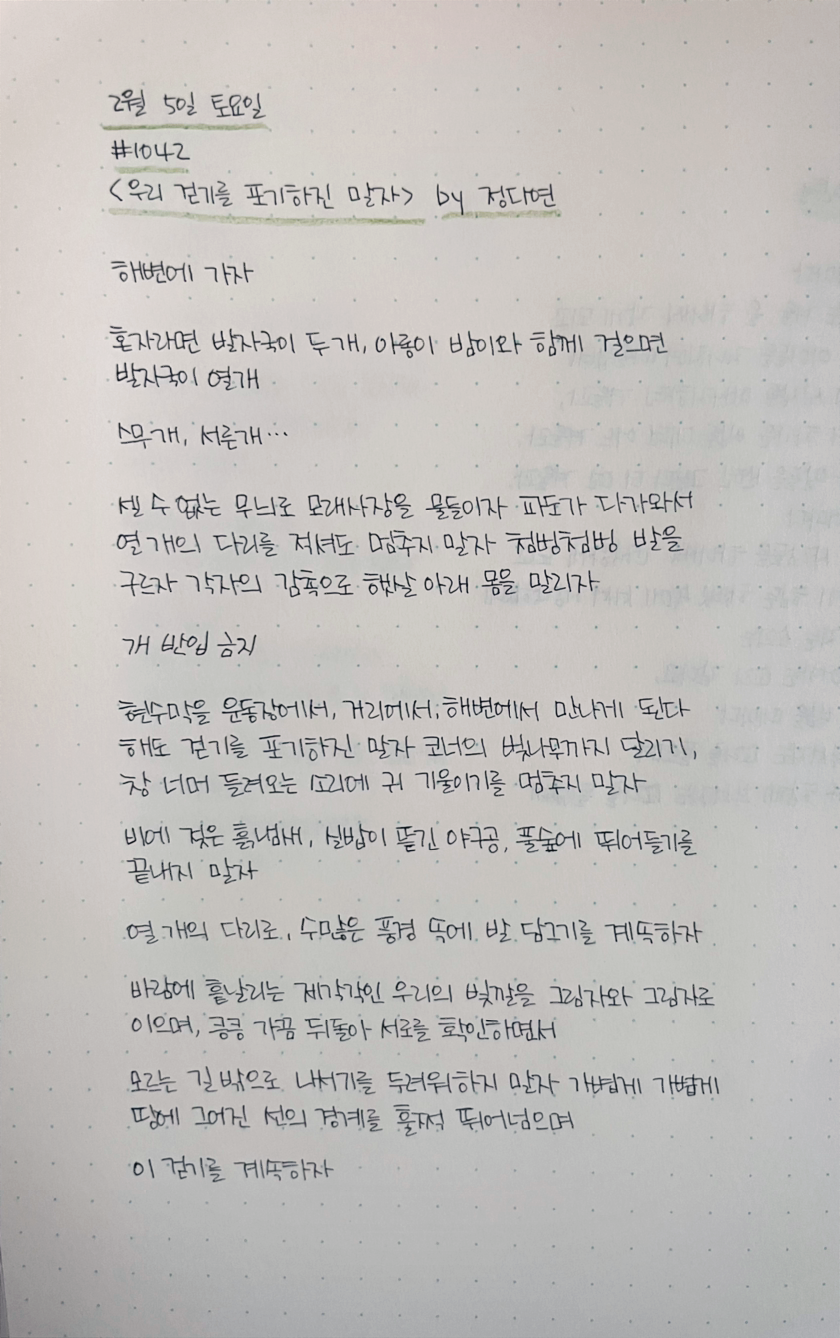 2월 5일 토요일
#1042
<우리 걷기를 포기하진 말자> by 정다연
해변에 가자
혼자라면 발자국이 두개, 아롱이 밤이와 함께 걸으면
발자국이 열개
스무개, 서른개…
셀 수 없는 무늬로 모래사장을 물들이자 파도가 다가와서
열 개의 다리를 적셔도 멈추지 말자 첨벙첨벙 발을
구르자 각자의 감촉으로 햇살 아래 몸을 말리자
개 반입 금지
현수막을 운동장에서, 거리에서, 해변에서 만나게 된다
해도 걷기를 포기하진 말자 코너의 벚나무까지 달리기,
창 너머 들려오는 소리에 귀 기울이기를 멈추지 말자
비에 젖은 흙냄새, 실밥이 뜯긴 야구공, 풀숲에 뛰어들기를
끝내지 말자
열 개의 다리로, 수많은 풍경 속에 발 담그기를 계속하자
바람에 흩날리는 제각각인 우리의 빛깔을 그림자와 그림자로
이으며, 킁킁 가끔 뒤돌아 서로를 확인하면서
모르는 길 밖으로 나서기를 두려워하지 말자 가볍게 가볍게
땅에 그어진 선의 경계를 훌쩍 뛰어넘으며
이 걷기를 계속하자